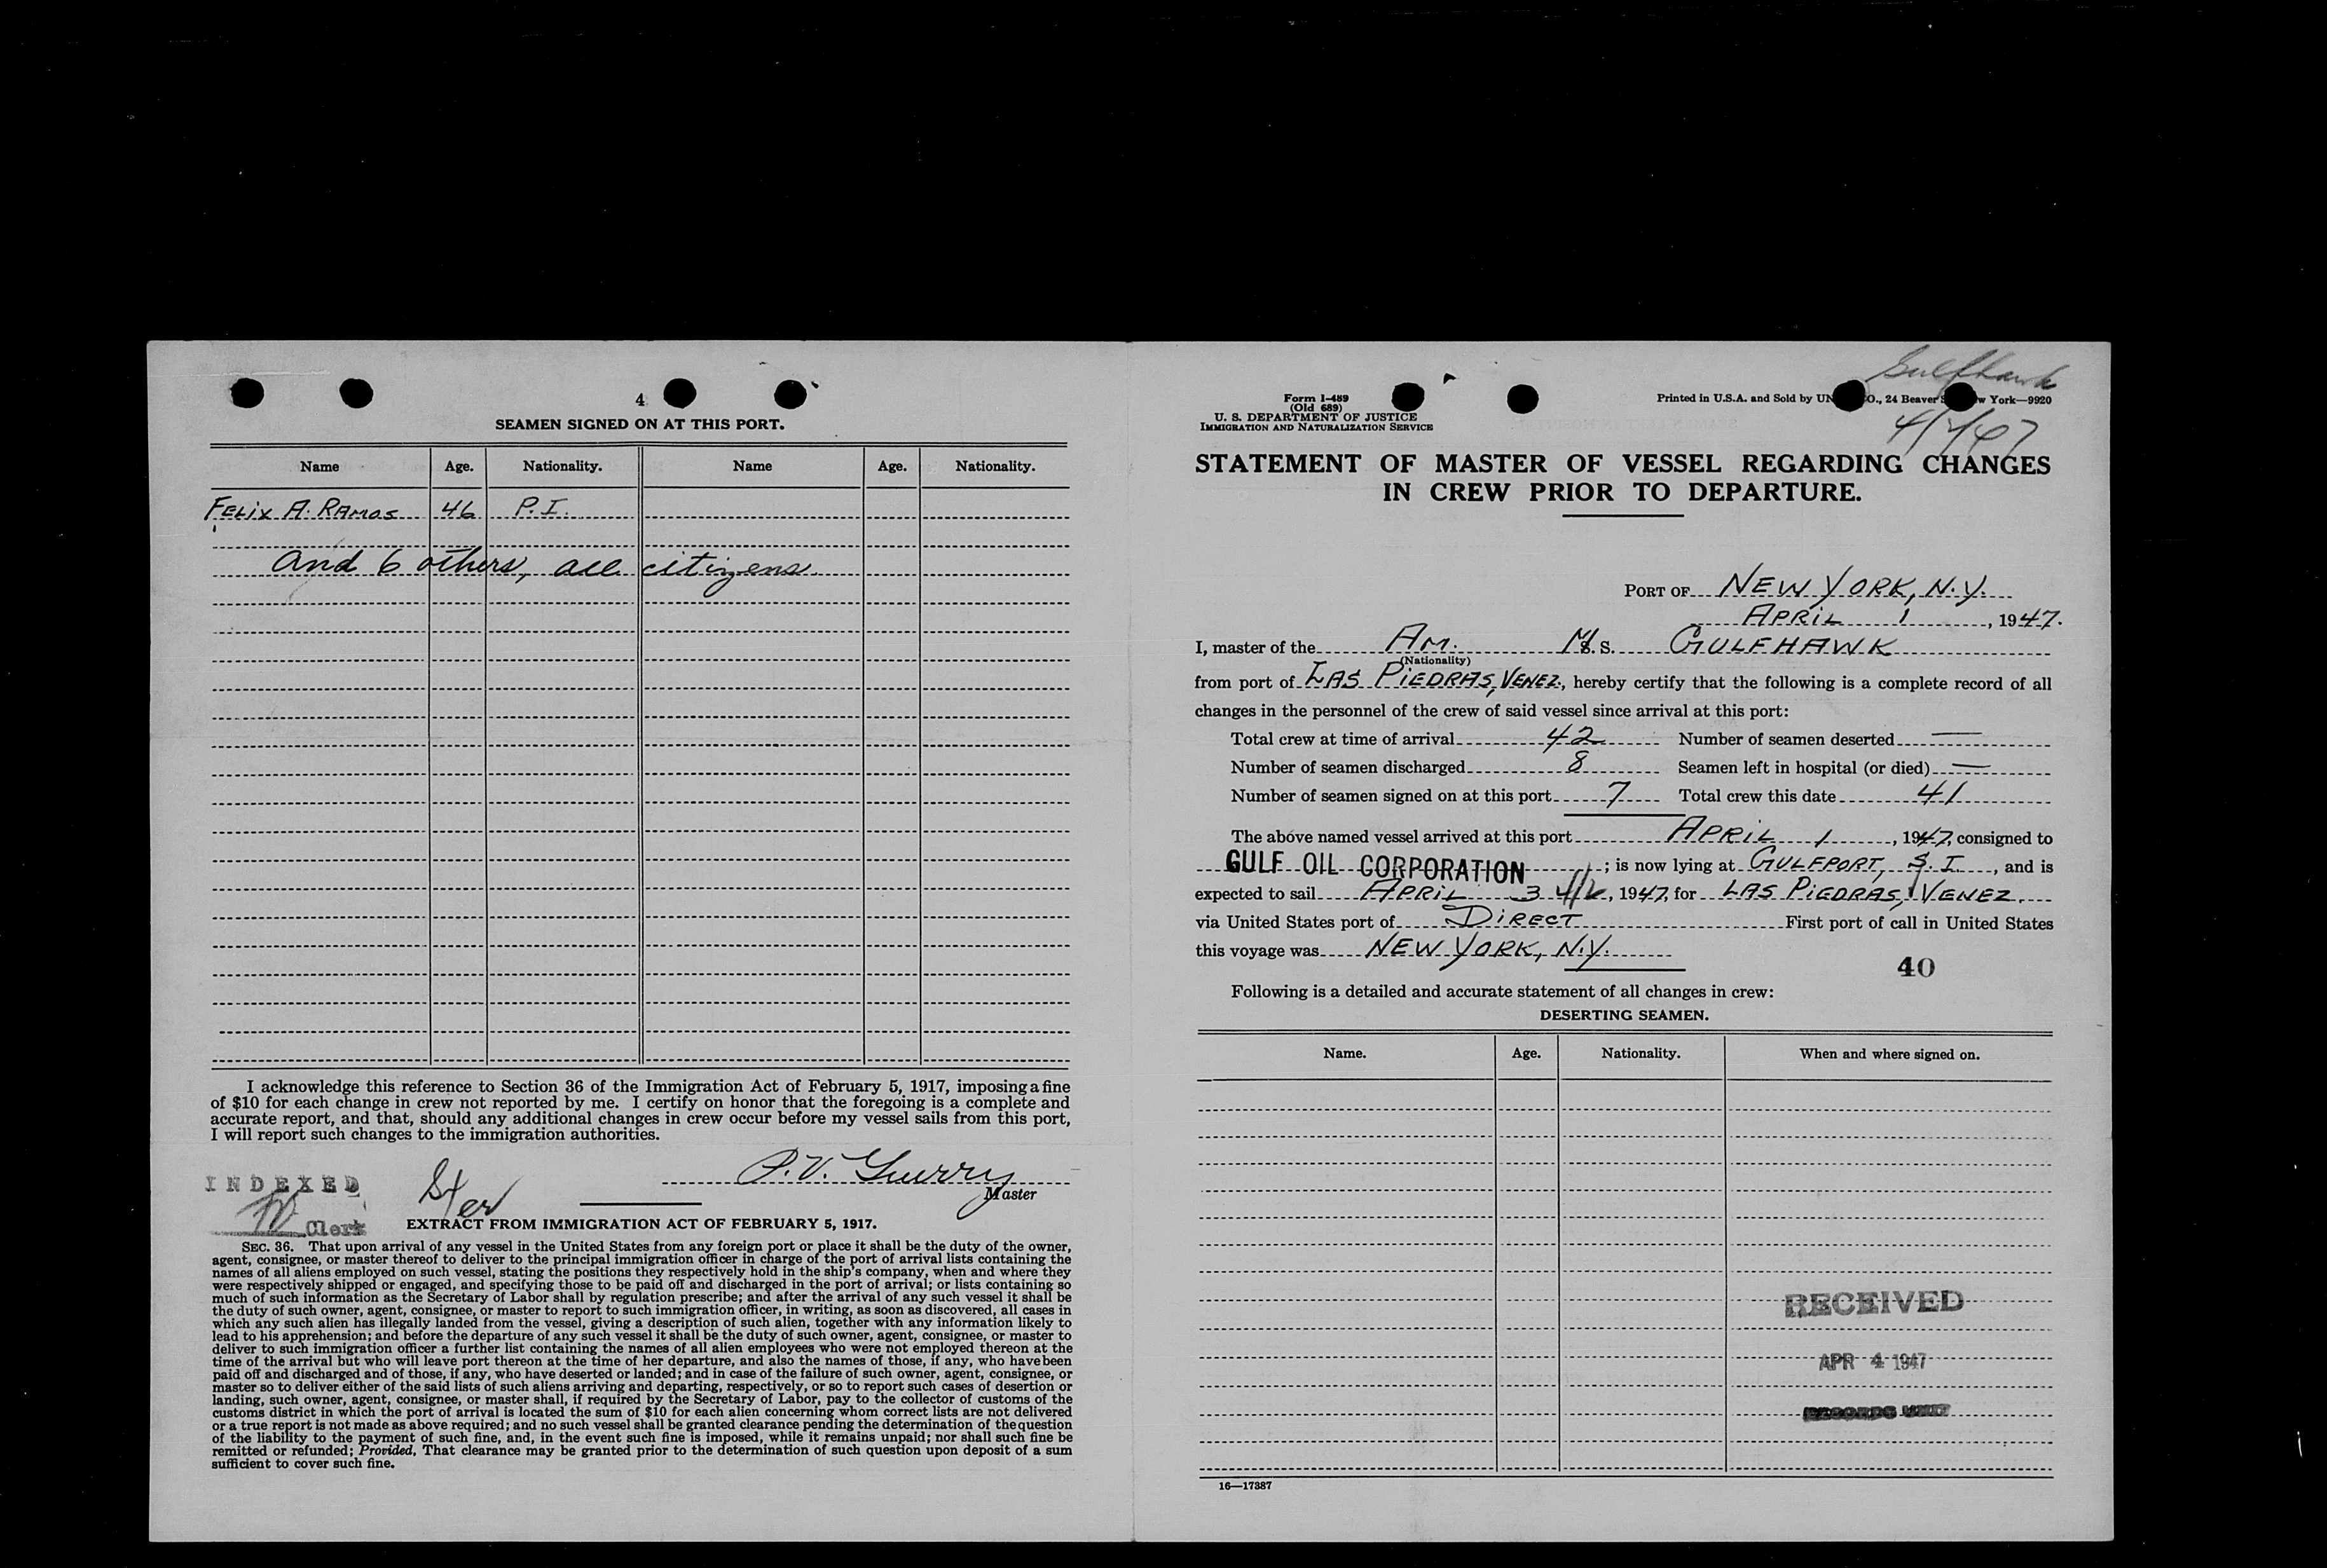 4
SEAMEN SIGNED ON AT THIS PORT.
Name Age. Nationality. Name Age. Nationality.
FELIX A. RAMOS 46 P.I.
And 6 others, all citizens
I acknowledge this reference to Section 36 of the Immigration Act of February 5, 1917, imposing a fine
of $10 for each change in crew not reported by me. I certify on honor that the foregoing is a complete and
accurate report, and that, should any additional changes in crew occur before my vessel sails from this port,
I will report such changes to the immigration authorities.
INDEXED
Clerk
P.V. Gurry
Master
EXTRACT FROM IMMIGRATION ACT OF FEBRUARY 5, 1917.
SEC. 36. That upon arrival of any vessel in the United States from any foreign port or place it shall be the duty of the owner,
agent, consignee, or master thereof to deliver to the principal immigration officer in charge of the port of arrival lists containing the
names of all aliens employed on such vessel, stating the positions they respectively hold in the ship's company, when and where they
were respectively shipped or engaged, and specifying those to be paid off and discharged in the port of arrival; or lists containing so
much of such information as the Secretary of Labor shall by regulation prescribe; and after the arrival of any such vessel it shall be
the duty of such owner, agent, consignee, or master to report to such immigration officer, in writing, as soon as discovered, all cases in
which any such alien has illegally landed from the vessel, giving a description of such alien, together with any information likely to
lead to his apprehension; and before the departure of any such vessel it shall be the duty of such owner, agent, consignee, or master to
deliver to such immigration officer a further list containing the names of all alien employees who were not employed thereon at the
time of the arrival but who will leave port thereon at the time of her departure, and also the names of those, if any, who have been
paid off and discharged and of those, if any, who have deserted or landed; and in case of the failure of such owner, agent, consignee, or
master so to deliver either of the said lists of such aliens arriving and departing, respectively, or so to report such cases of desertion or
landing, such owner, agent, consignee, or master shall, if required by the Secretary of Labor, pay to the collector of customs of the
customs district in which the port of arrival is located the sum of $10 for each alien concerning whom correct lists are not delivered
or a true report is not made as above required; and no such vessel shall be granted clearance pending the determination of the question
of the liability to the payment of such fine, and, in the event such fine is imposed, while it remains unpaid; nor shall such fine be
remitted or refunded; Provided, That clearance may be granted prior to the determination of such question upon deposit of a sum
sufficient to cover such fine.
Gulfhawk
Form I-489
(Old 689)
U. S. DEPARTMENT OF JUSTICE
IMMIGRATION AND NATURALIZATION SERVICE
Printed in U.S.A. and Sold by UN O., 24 Beaver S w York—9920
STATEMENT OF MASTER OF VESSEL REGARDING CHANGES
IN CREW PRIOR TO DEPARTURE.
PORT OF NEW YORK, N.Y.
APRIL 1, 1947.
I, master of the AM. M.S. GULFHAWK
(Nationality)
from port of LAS PIEDRAS, VENEZ., hereby certify that the following is a complete record of all
changes in the personnel of the crew of said vessel since arrival at this port:
Total crew at time of arrival 42 Number of seamen deserted —
Number of seamen discharged 8 Seamen left in hospital (or died) —
Number of seamen signed on at this port 7 Total crew this date 41
The above named vessel arrived at this port APRIL 1, 1947, consigned to
GULF OIL CORPORATION; is now lying at GULFPORT, S.I., and is
expected to sail APRIL 3, 1947, for LAS PIEDRAS, VENEZ.
via United States port of DIRECT First port of call in United States
this voyage was NEW YORK, N.Y.
40
Following is a detailed and accurate statement of all changes in crew:
DESERTING SEAMEN.
Name. Age. Nationality. When and where signed on.
RECEIVED
APR 4 1947
RECORDS UNIT
16—17387